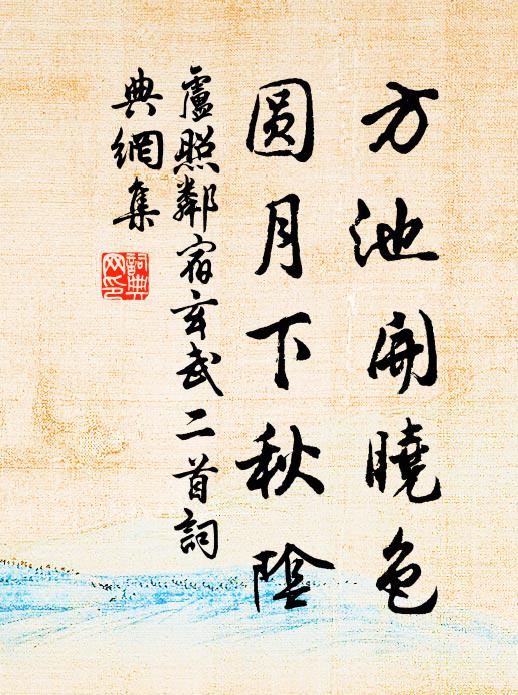 方池开曉色
圆月下秋陰
盧照鄰宿玄武二首詞
典網集
詞典
网印